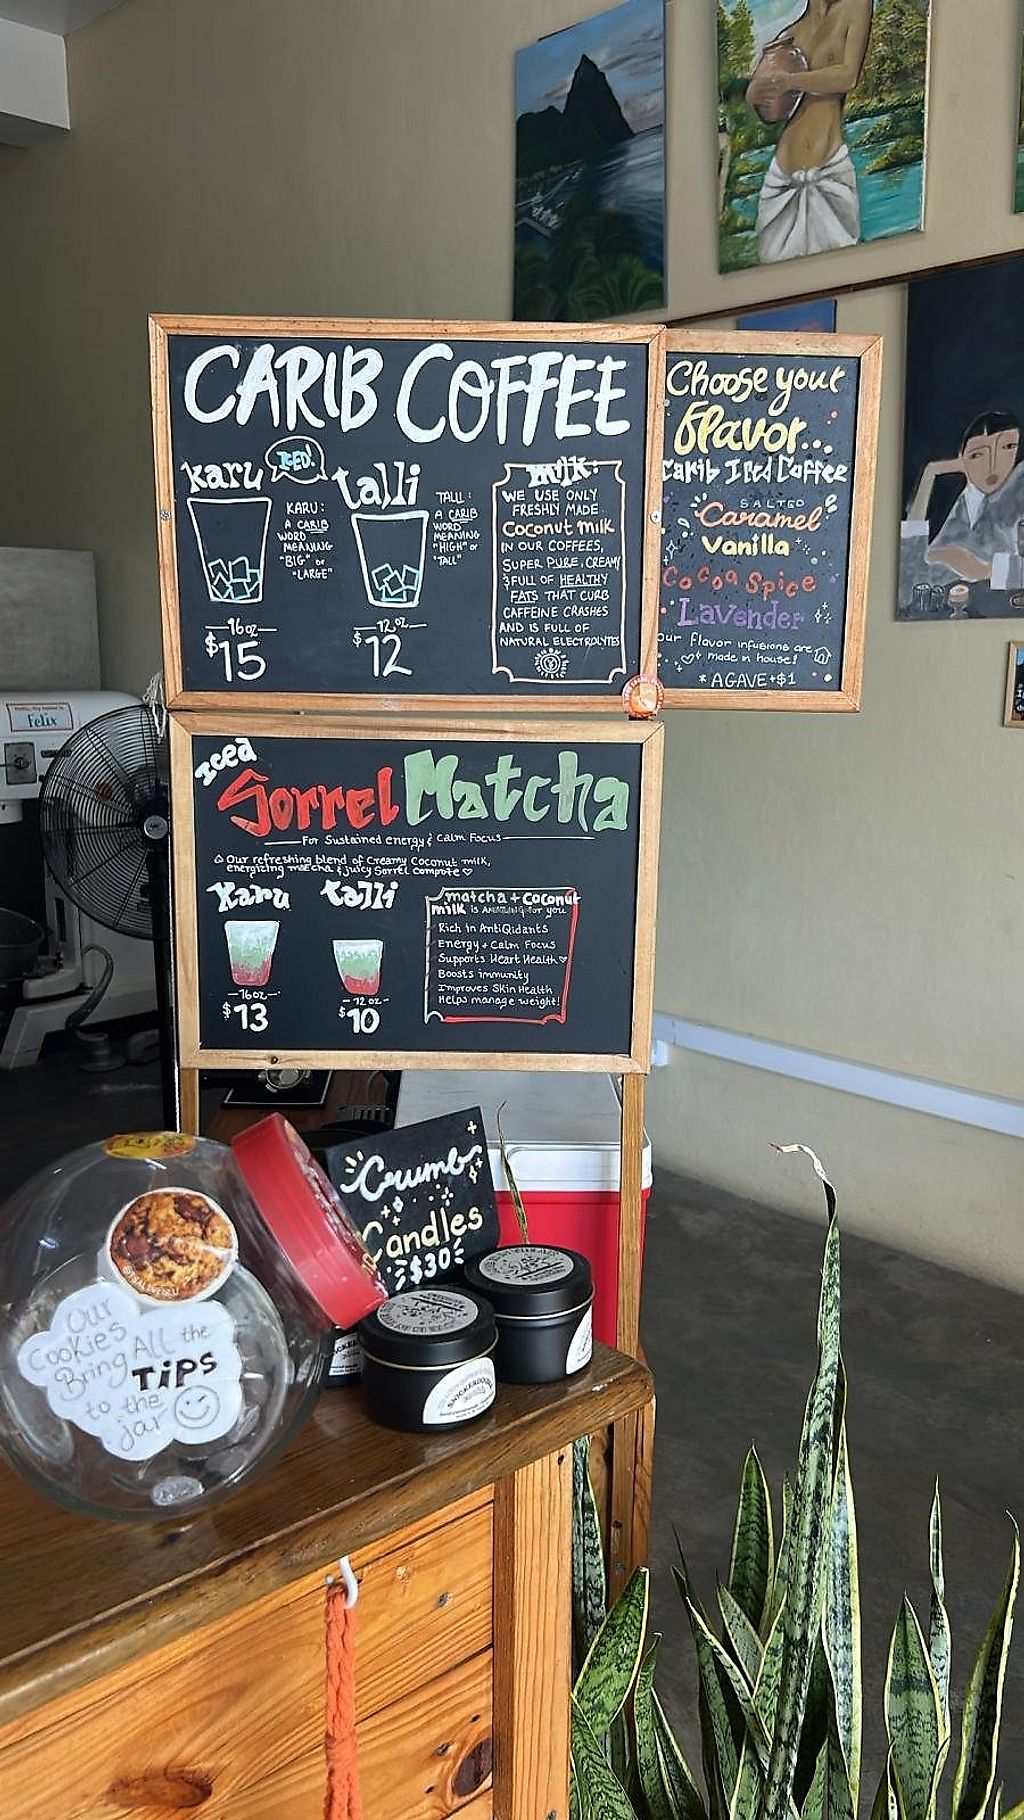 CARIB COFFEE
karu
ICED!
talli
KARU:
A CARIB
WORD
MEANING
"BIG" or
"LARGE"
TALLI:
A CARIB
WORD
MEANING
"HIGH" or
"TALL"
16oz
$15
12oz
$12
milk:
WE USE ONLY
FRESHLY MADE
Coconut milk
IN OUR COFFEES,
SUPER PURE, CREAMY
& FULL OF HEALTHY
FATS THAT CURB
CAFFEINE CRASHES
AND IS FULL OF
NATURAL ELECTROLYTES
Choose your
flavor...
Carib Iced Coffee
SALTED
Caramel
Vanilla
Cocoa Spice
Lavender
our flavor infusions are
made in house!
* AGAVE +$1
Hello, my name is
Felix
Iced
Sorrel Matcha
For Sustained energy & calm Focus
Our refreshing blend of Creamy Coconut milk,
energizing matcha & juicy Sorrel Compote
Karu
talli
16oz
$13
12oz
$10
matcha + Coconut
milk is AMAZING for you
Rich in AntiQidants
Energy + Calm Focus
Supports Heart Health
Boosts immunity
Improves Skin Health
Helps manage weight!
Crumb
Candles
$30
Our
Cookies
Bring All the
TiPS
to the
jar
SNICKERDOODLE